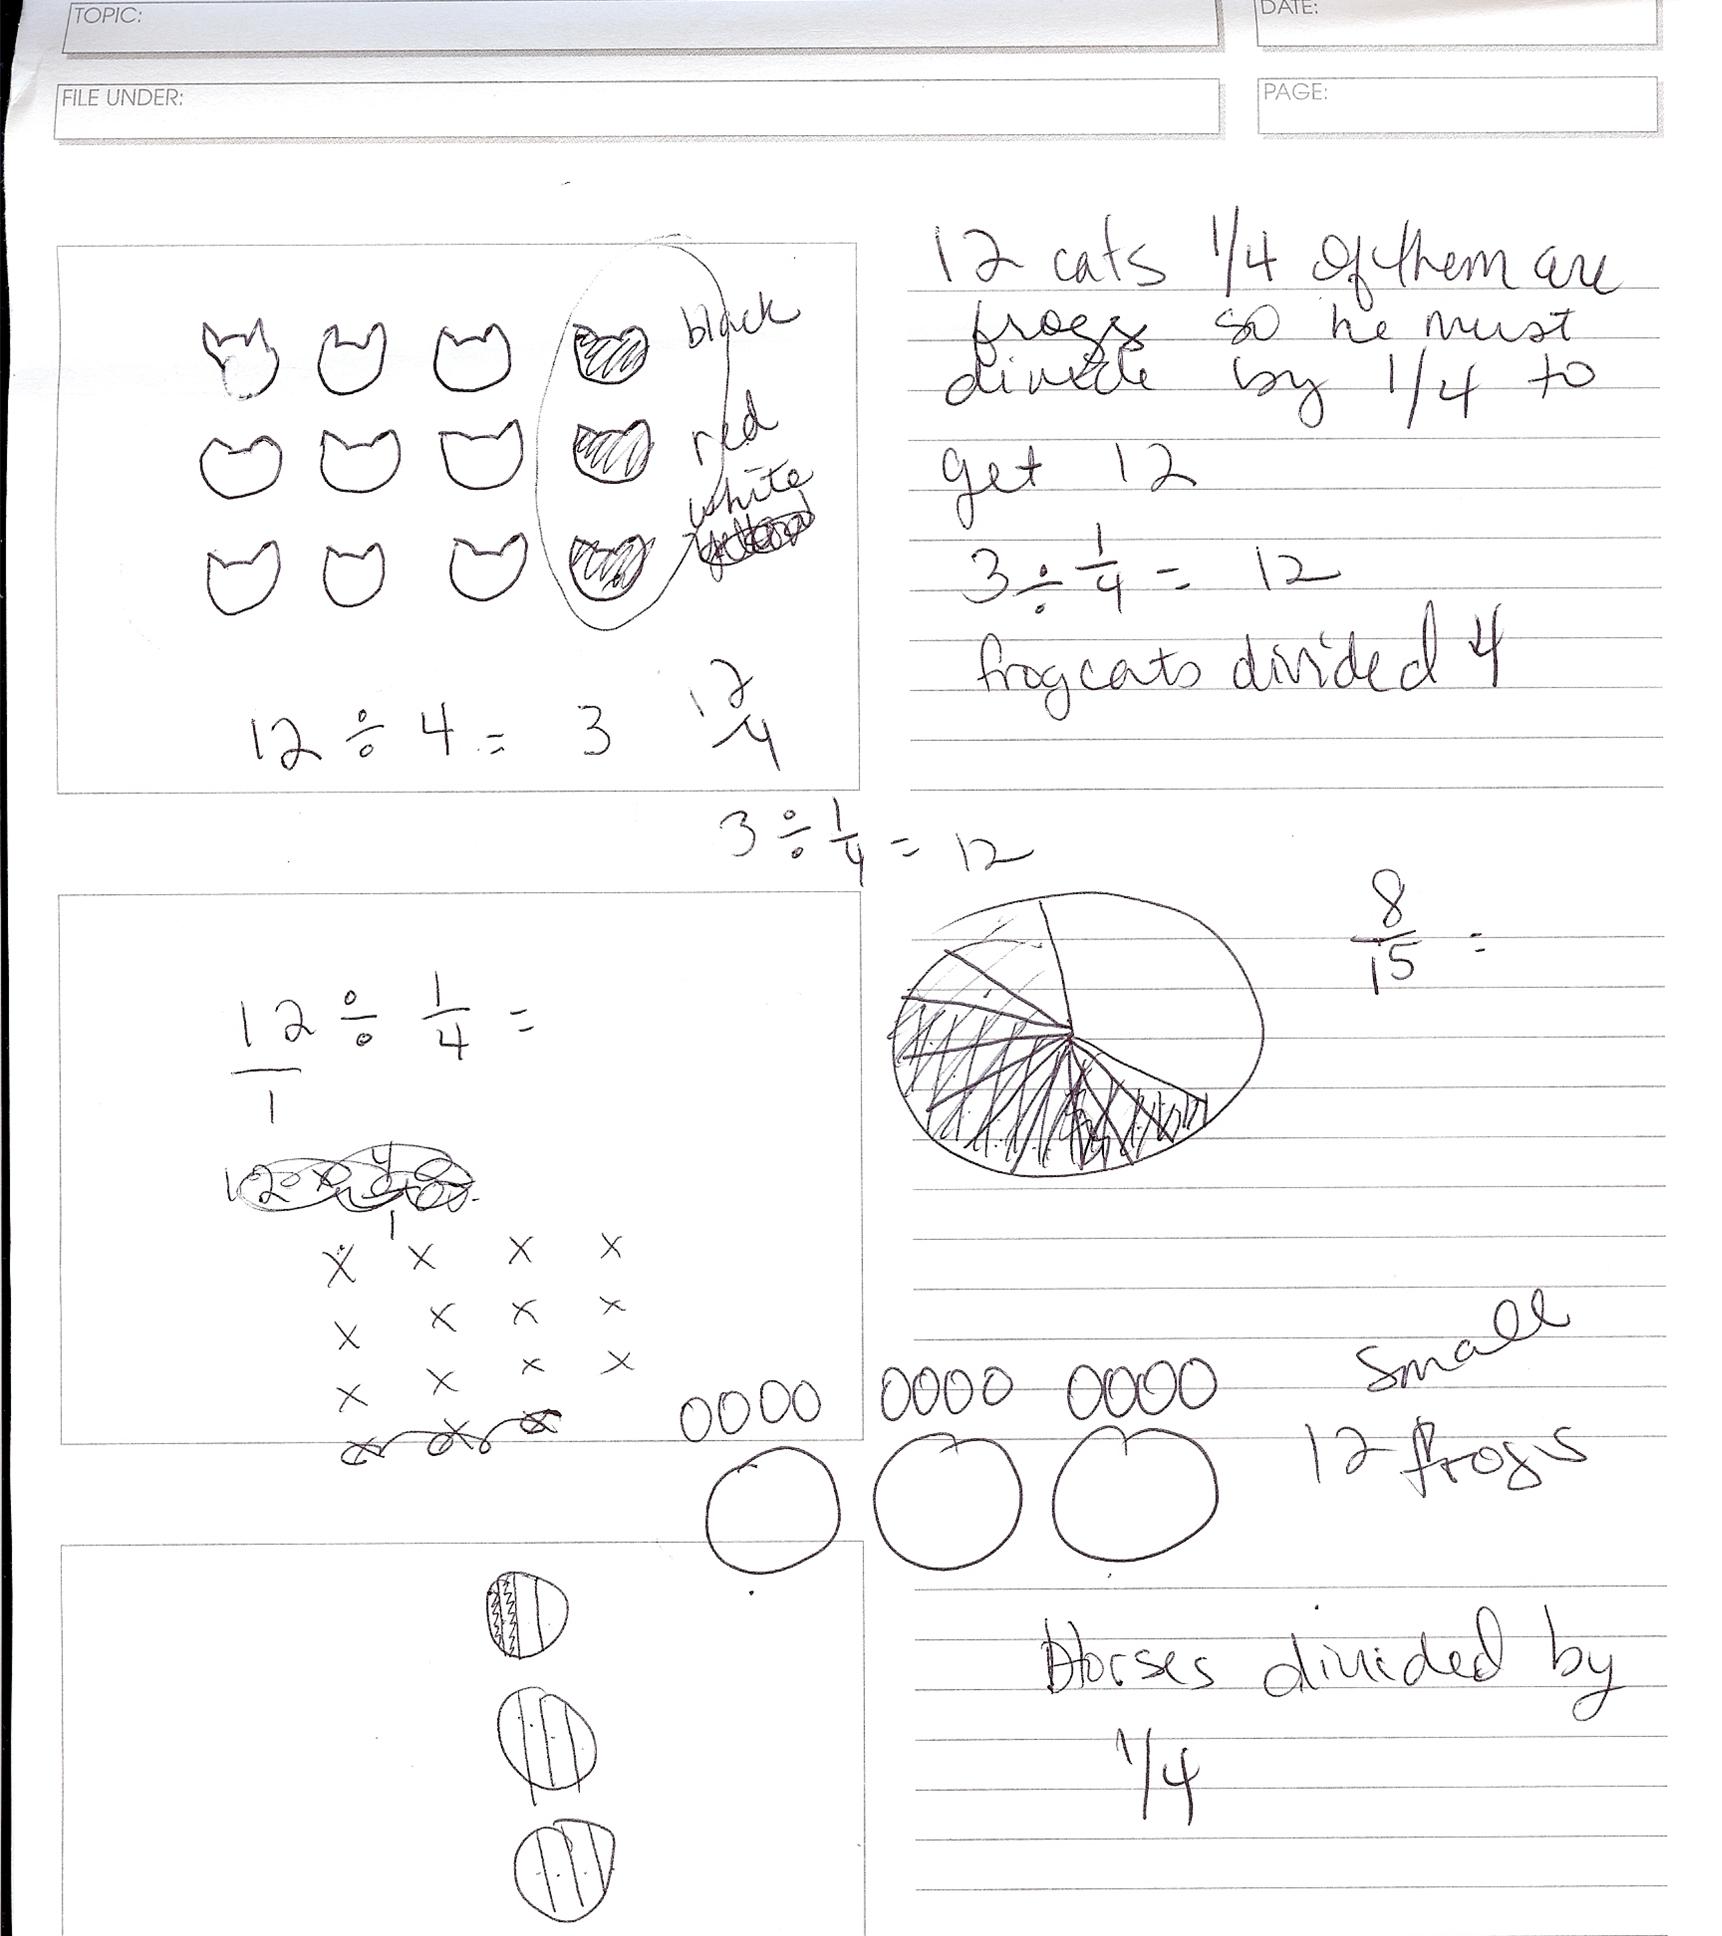 TOPIC:
DATE:
FILE UNDER:
PAGE:
black
red
white
12 ÷ 4 = 3
12/4
12 cats 1/4 of them are
frogs so he must
divide by 1/4 to
get 12
3 ÷ 1/4 = 12
frogcats divided 4
3 ÷ 1/4 = 12
12/1 ÷ 1/4 =
8/15 =
x x x x
x x x x
x x x x
0000 0000 0000
small
12 frogs
Horses divided by
1/4